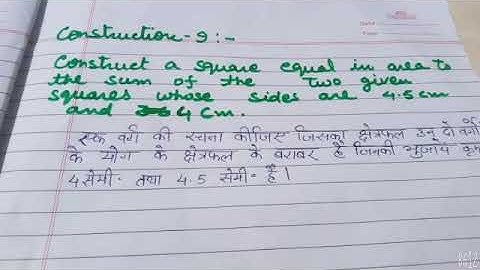 Construction - 9 :-
Construct a square equal in area to
the sum of the two given
squares whose sides are 4.5 cm
and 4 Cm.
एक वर्ग की रचना कीजिए जिसका क्षेत्रफल उन दो वर्गों
के योग के क्षेत्रफल के बराबर है जिनकी भुजायें
4 सेमी॰ तथा 4.5 सेमी॰ है।